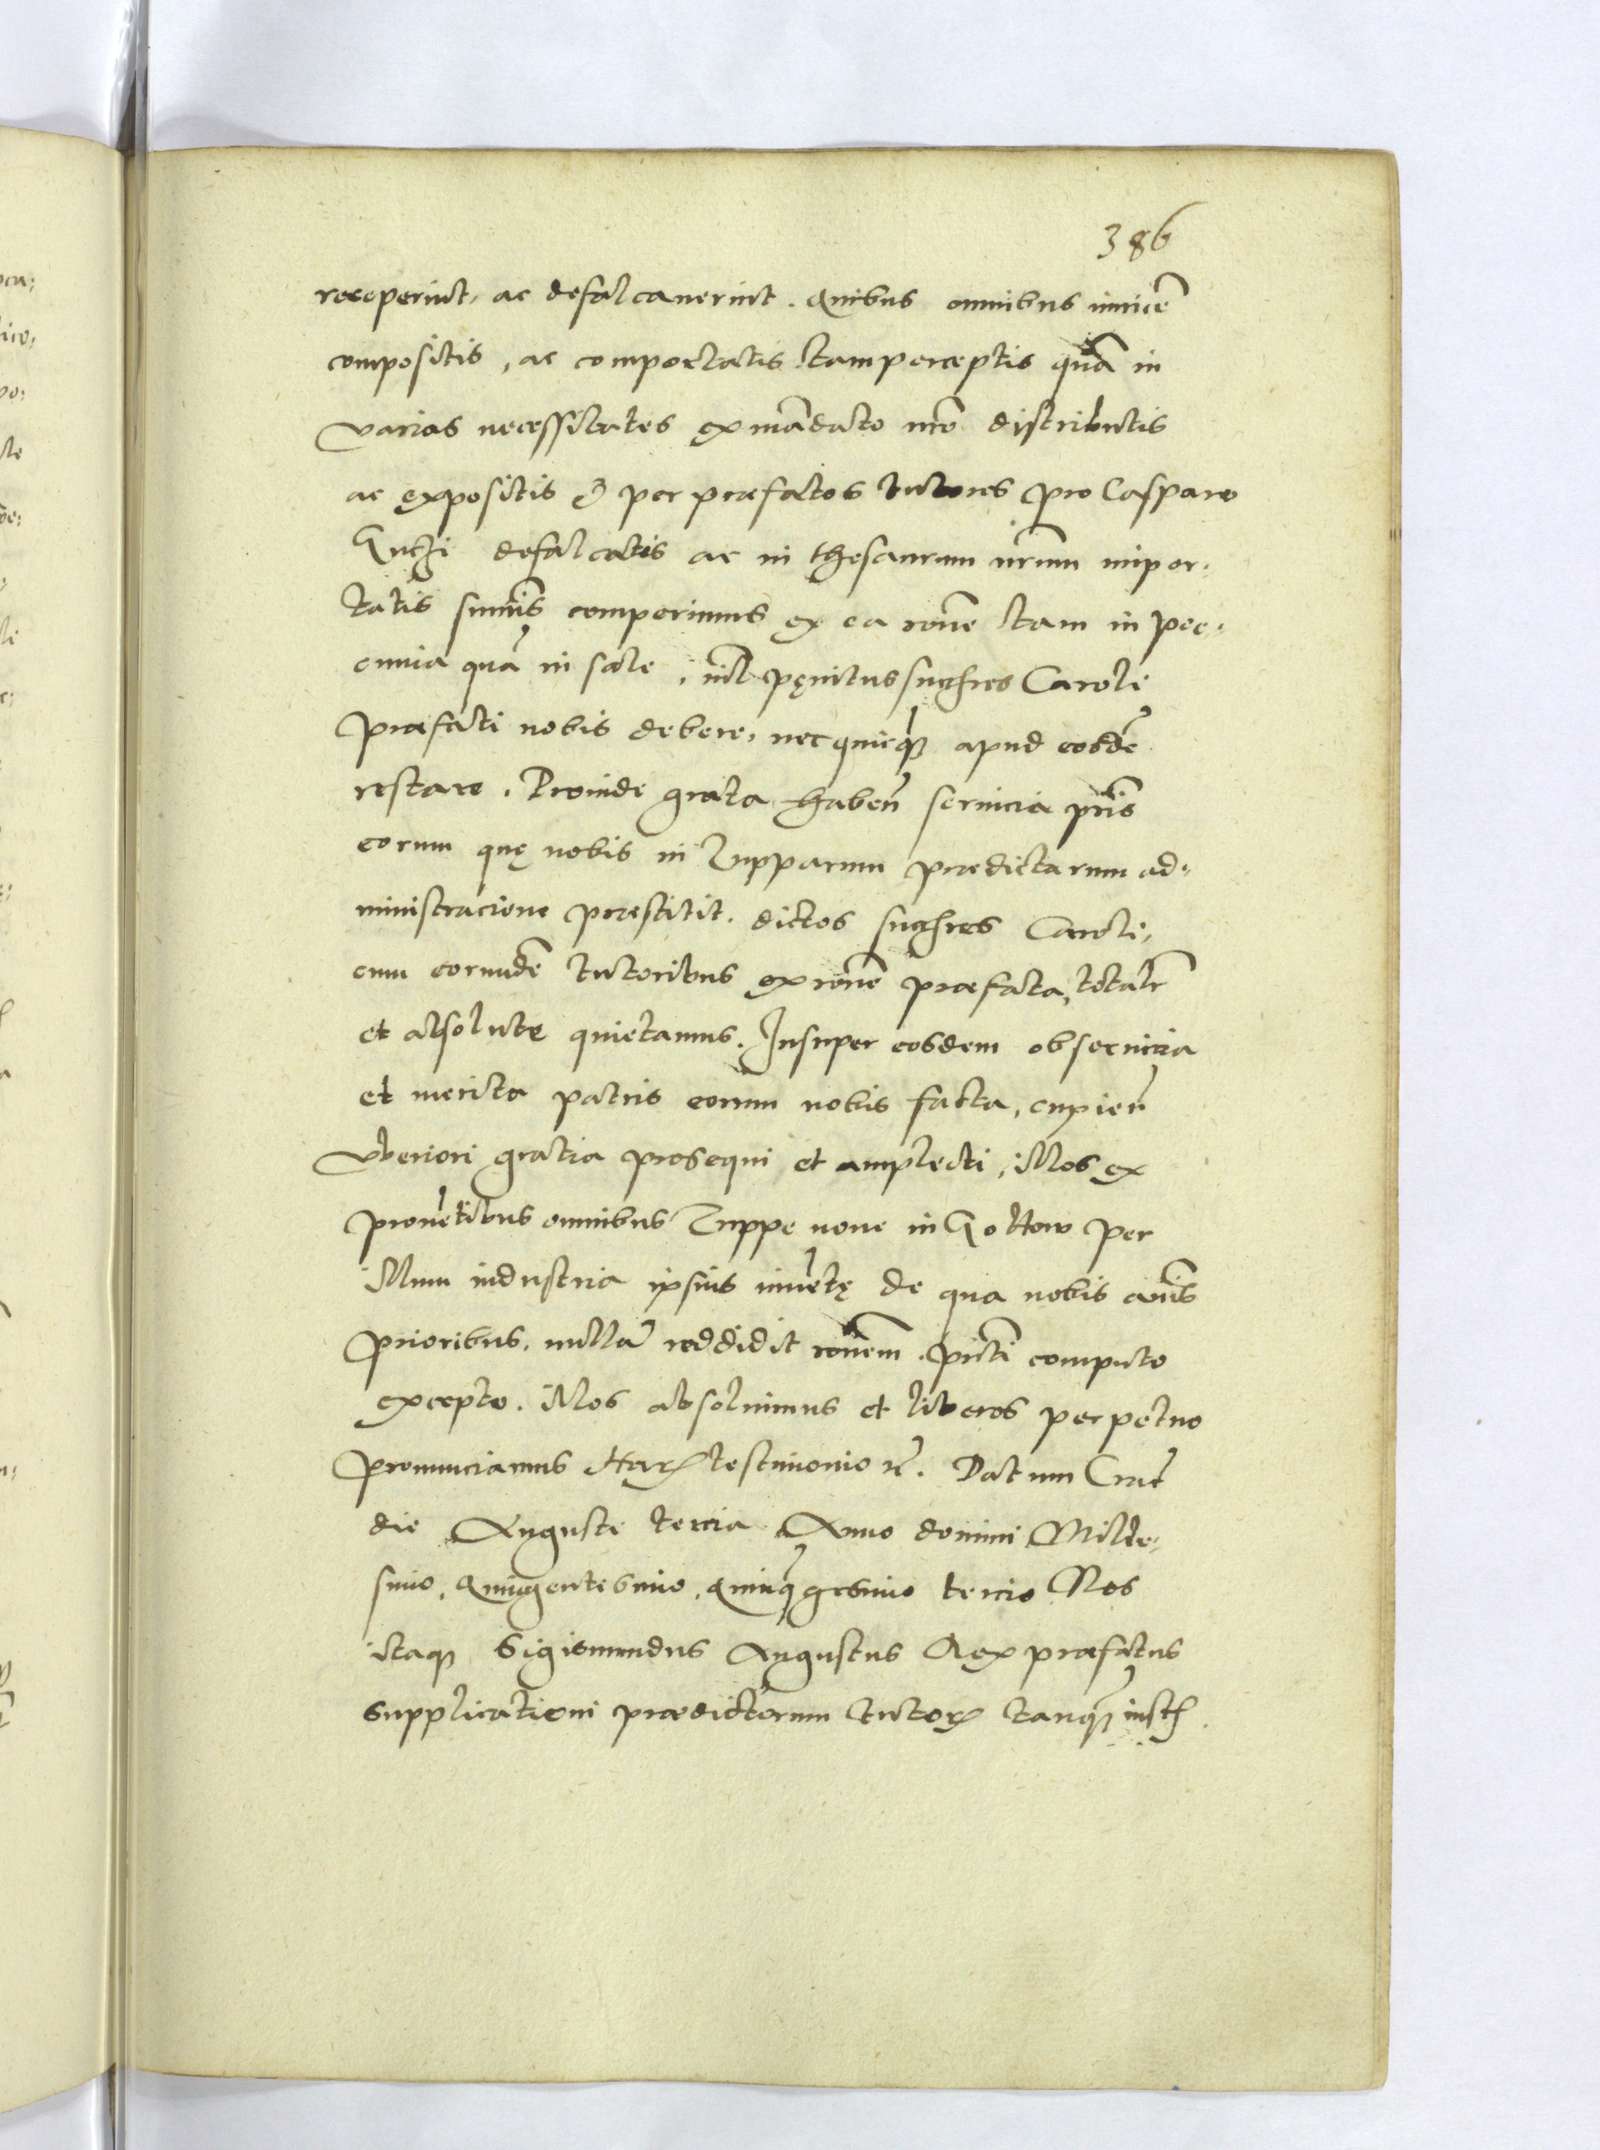 386
receperint, ac defalcauerint. Quibus omnibus inuicẽ
compositis, ac comportatis tam perceptis quã in
varias necessitates ex mãdato nrõ distributis
ac expositis & per præfatos tutores pro Casparo
Gutzi defalcatis ac in thesaurum nrũm impor,
tatis sumĩs comperimus ex ea rõne tam in pec,
cunia quã in sale, nil pęnitus succhres Caroli
præfati nobis debere, nec quicq̃ apud eosdẽ
restare. Proinde grata habeñ seruicia pris
eorum quę nobis in Zupparum prædictarum ad,
ministracione præstitit. dictos succhres Caroli,
cum eorundẽ tutoribus ex rõne præfata, totalr
et absolute quietamus. Insuper eosdem ob seruicia
et merita patris eorum nobis facta, cupieñ
vberiori gratia prosequi et amplecti, Illos ex
prouẽtibus omnibus Zuppe noue in
per
illum industria ipsius inuẽtę de qua nobis annis
prioribus, nullã reddidit rõnem. pñti computo
excepto. Illos absoluimus et liberos perpetuo
pronunciamus Harꝝ testimonio rẽ. Datum Crac̃
die Auguste tercia Anno domini Mille,
simo, Quingentesimo, Quinq̃gesimo tercio Nos
itaq̃ Sigismundus Augustus Rex præfatus
supplicationi prædictorum tutorꝝ tanq̃